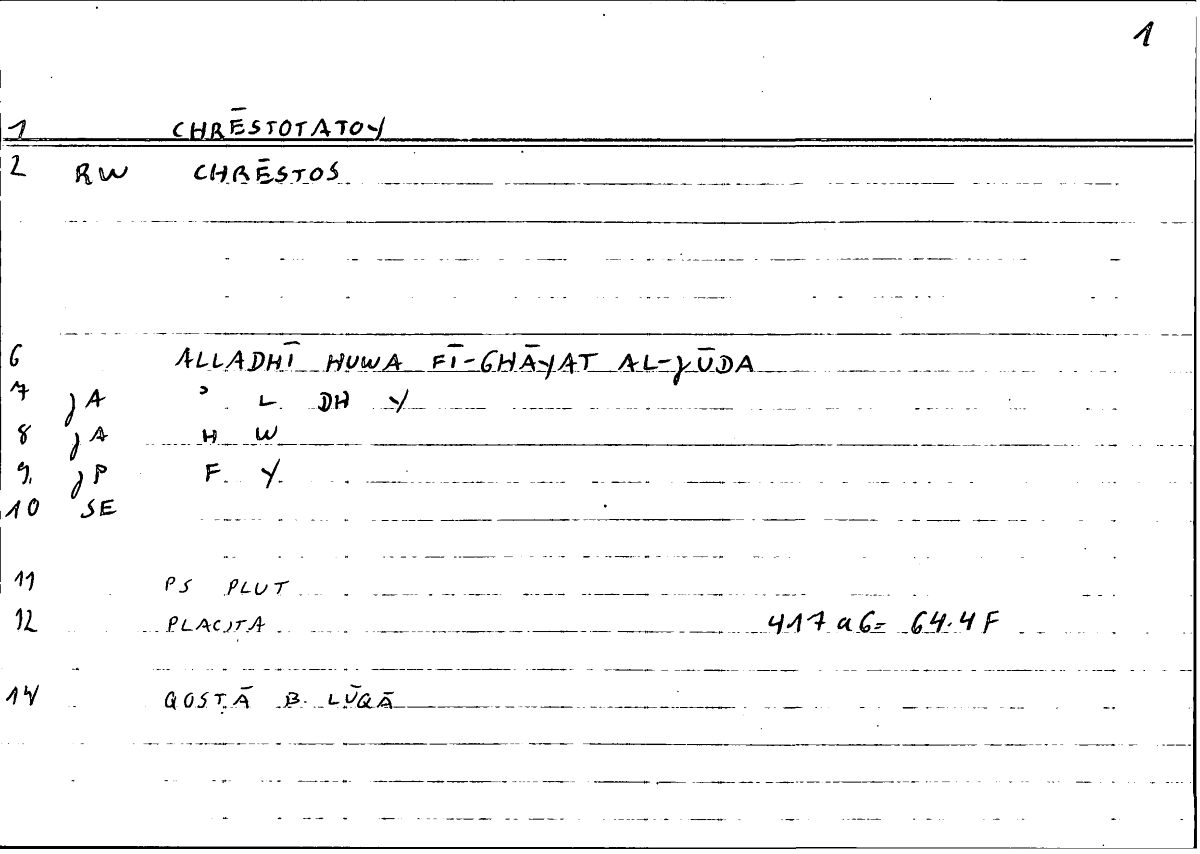 1
1 CHRĒSTOTATOY
2 RW CHRĒSTOS
6 ALLADHĪ HUWA FĪ-GHĀYAT AL-JŪDA
7 JA ʾ L DH Y
8 JA H W
9. JP F Y
10 SE
11 PS PLUT
12 PLACITA 417 a 6 = 64.4 F
14 QOSṬĀ B. LŪQĀ